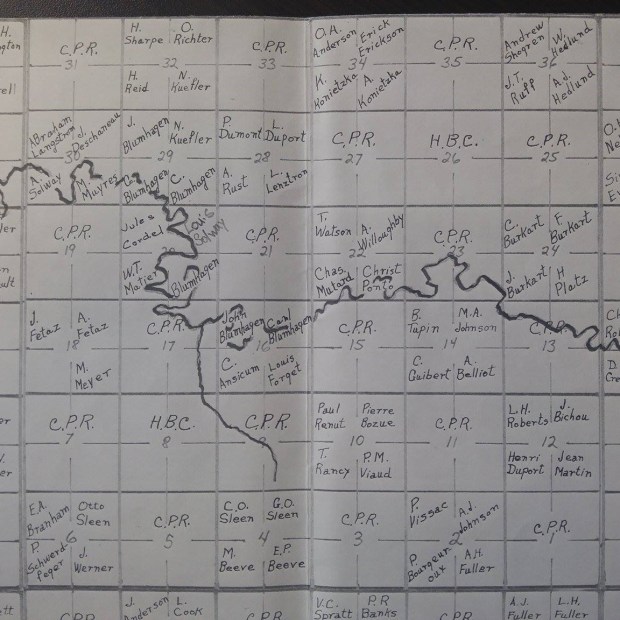 H.
C.P.R.
31
H. Sharpe
O. Richter
32
H. Reid
N. Kuefler
C.P.R.
33
O.A. Anderson
Erick Erickson
34
K. Konietzka
A. Konietzka
C.P.R.
35
Andrew Shogren
W. Hedlund
36
J.T. Rupp
A.J. Hedlund
Abraham Langstrom
J. Deschaneau
30
A. Solway
M. Muyres
J. Blumhagen
N. Kuefler
29
Blumhagen
C. Blumhagen
P. Dumont
L. Duport
28
A. Rust
L. Lenztron
C.P.R.
27
H.B.C.
26
C.P.R.
25
C.P.R.
19
Jules Cordel
Louis Solway
20
W.T. Matier
Blumhagen
C.P.R.
21
T. Watson
A. Willoughby
22
Chas. Mutard
Christ Ponto
C.P.R.
23
C. Burkart
F. Burkart
24
J. Burkart
H Platz
J. Fetaz
A. Fetaz
18
M. Meyer
C.P.R.
17
John Blumhagen
Carl Blumhagen
16
C. Ansicum
Louis Forget
C.P.R.
15
B. Tapin
M.A. Johnson
14
C. Guibert
A. Belliot
C.P.R.
13
C.P.R.
7
H.B.C.
8
C.P.R.
9
Paul Renut
Pierre Bozue
10
T. Rancy
P.M. Viaud
C.P.R.
11
L.H. Roberts
J. Bichou
12
Henri Duport
Jean Martin
E.A. Branham
Otto Sleen
6
P. Schwerdfeger
J. Werner
C.P.R.
5
C.O. Sleen
G.O. Sleen
4
M. Beeve
E.P. Beeve
C.P.R.
3
P. Vissac
A.J. Johnson
2
P. Bourgeuroux
A.H. Fuller
C.P.R.
1
C.P.R.
J. Anderson
L. Cook
C.P.R.
V.C. Spratt
P.R Banks
C.P.R.
A.J. Fuller
L.H. Fuller